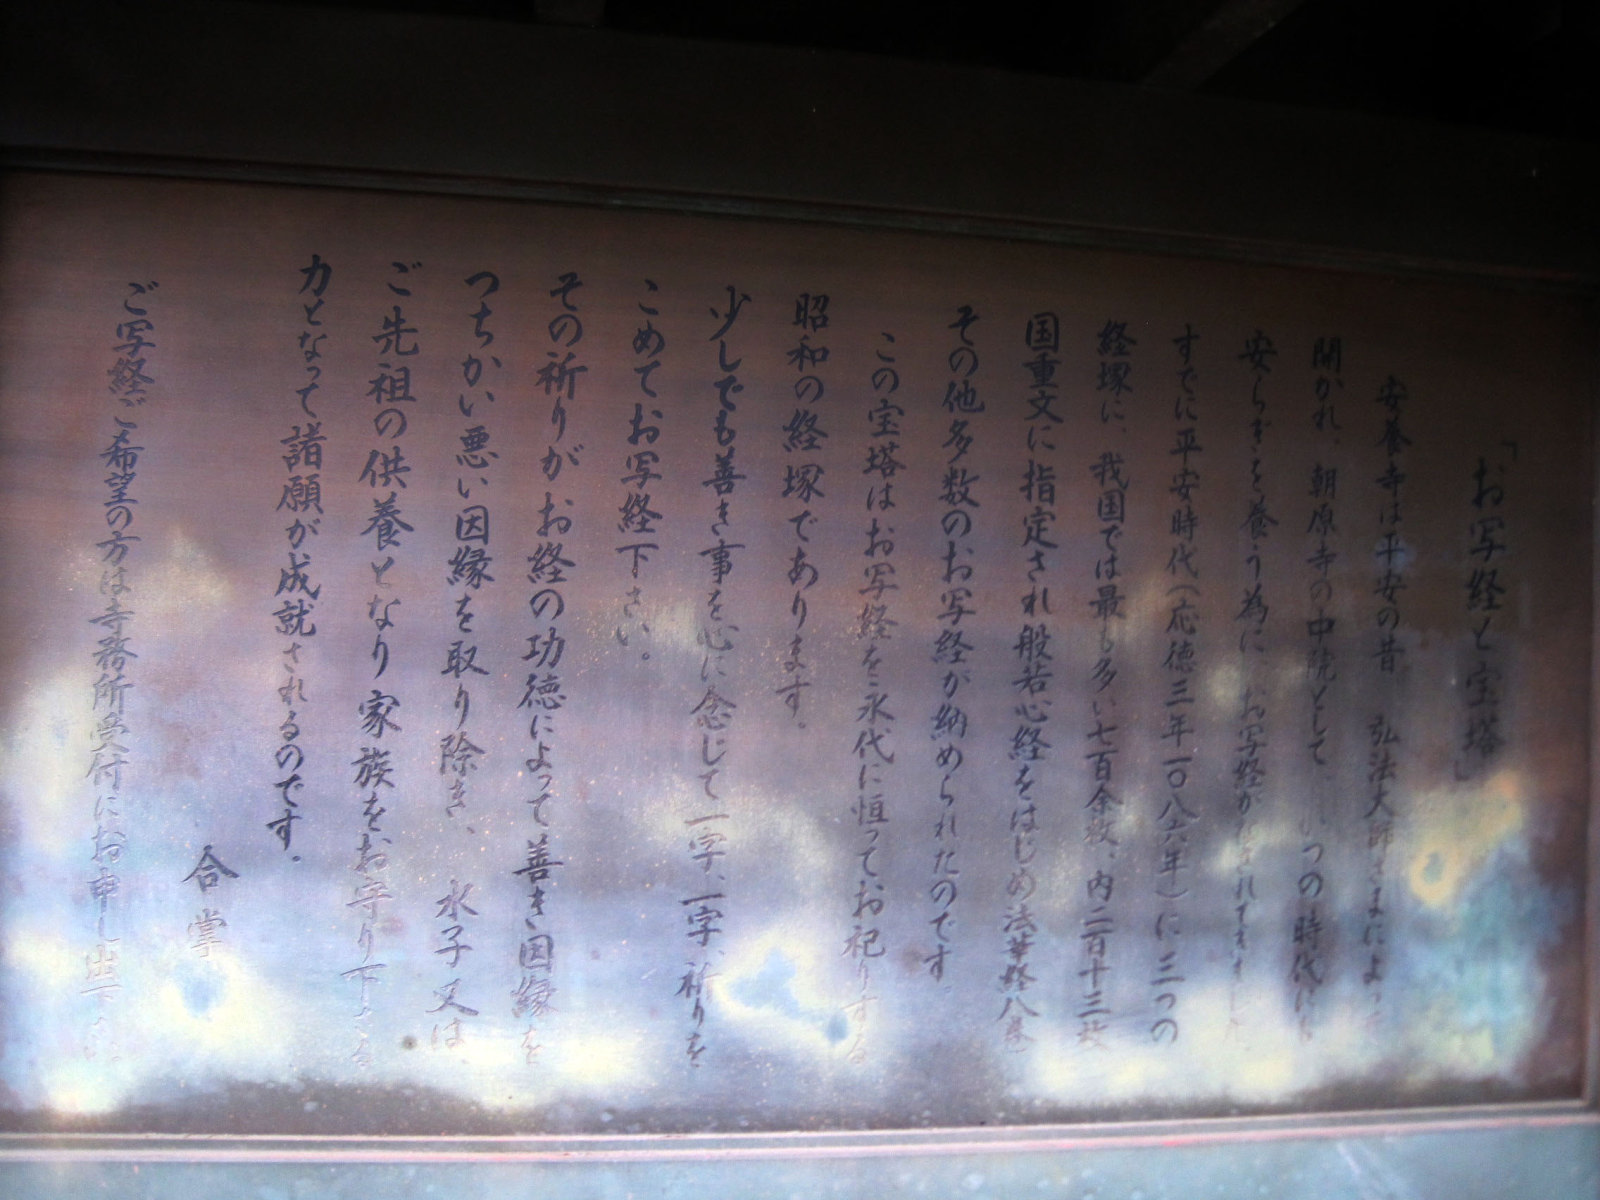 「お写経と宝塔」
安養寺は平安の昔 弘法大師さまによって
開かれ、朝原寺の中院として、いつの時代にも
安らぎを養う為に、お写経がなされてきました
すでに平安時代（応徳三年一〇八六年）に三つの
経塚に、我国では最も多い七百余枚、内二百十三枚
国重文に指定され般若心経をはじめ法華経八巻
その他多数のお写経が納められたのです。
この宝塔はお写経を永代に恒ってお祀りする
昭和の経塚であります。
少しでも善き事を心に念じて一字、一字、祈りを
こめてお写経下さい。
その祈りがお経の功徳によって善き因縁を
つちかい悪い因縁を取り除き、水子又は、
ご先祖の供養となり家族をお守り下さる
力となって諸願が成就されるのです。
合掌
ご写経ご希望の方は寺務所受付にお申し出下さい。